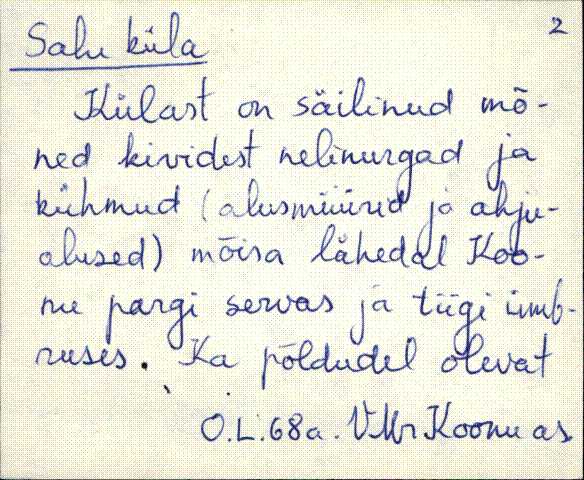 Salu küla 2
Külast on säilinud mõ-
ned kividest nelinurgad ja
kühmud (alusmüürid ja ahju-
alused) mõisa lähedal Koo-
nu pargi servas ja tiigi ümb-
ruses. Ka põldudel olevat
O.L. 68a. VMr Koonu as.